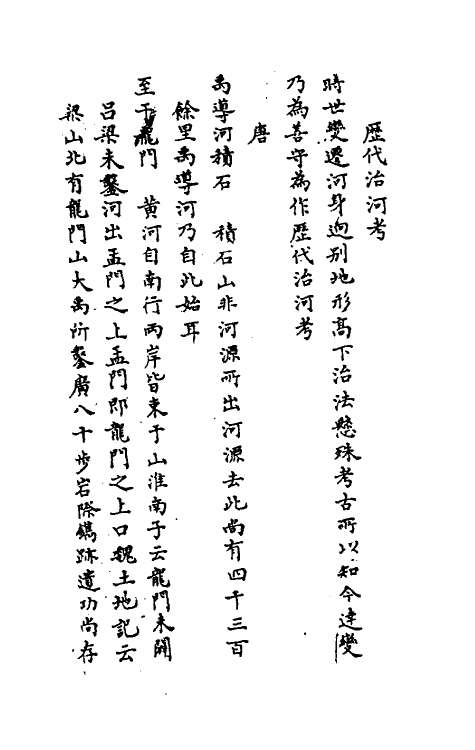 歴代治河考
時世變遷河身逈别地形髙下治法懸殊考古所以知今達變
乃為善守為作歴代治河考
唐
禹導河積石　積石山非河源所出河源去此尚有四千三百
餘里禹導河乃自此始耳
至于龍門　黄河自南行两岸皆束于山淮南子云龍門未闢
吕梁未鑿河出孟門之上孟門即龍門之上口魏土地記云
梁山北有龍門山大禹所鑿廣八十步岩際鐫跡遺功尚存